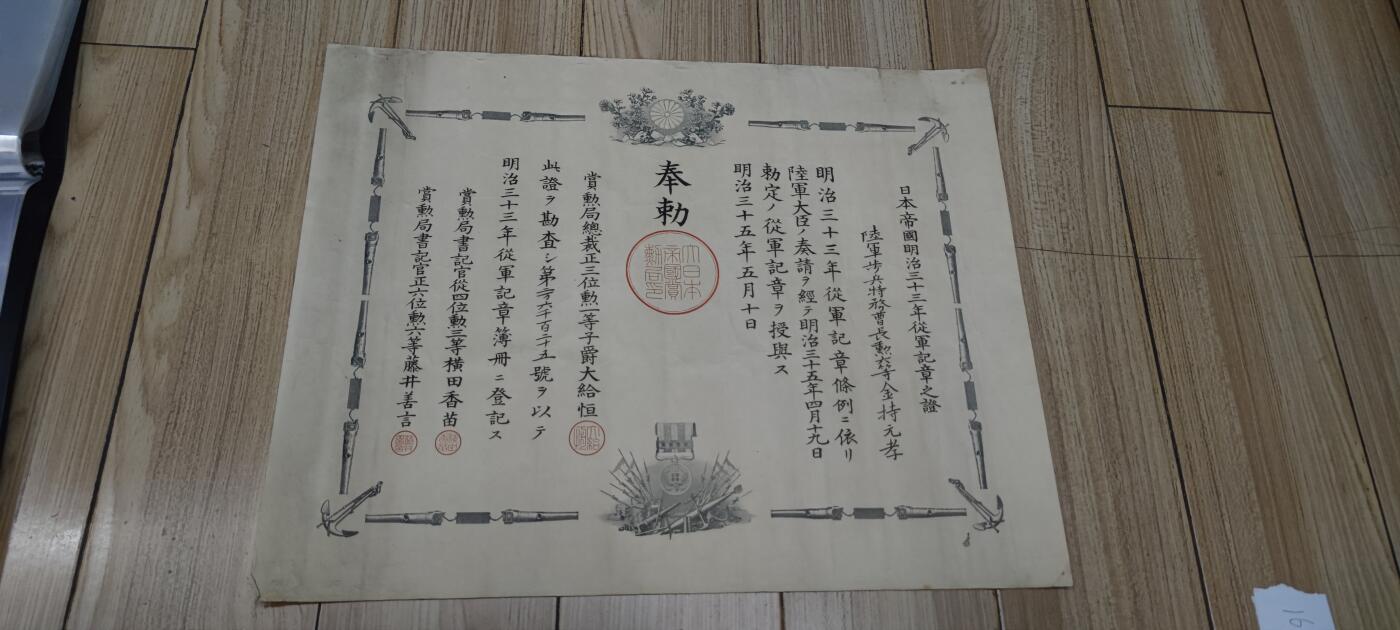 日本帝國明治三十三年從軍記章之證
陸軍步兵特務曹長勲八等金持元孝
明治三十三年從軍記章條例ニ依リ
陸軍大臣ノ奏請ヲ經テ明治三十五年四月十九日
勅定ノ從軍記章ヲ授與ス
明治三十五年五月十日
奉勅
大日本帝國賞勲局印
賞勲局總裁正三位勲一等子爵大給恒
此證ヲ勘査シ第 六千百二十五號ヲ以テ
明治三十三年從軍記章簿冊ニ登記ス
賞勲局書記官從四位勲三等橫田香苗
賞勲局書記官正六位勲六等藤井善言
16